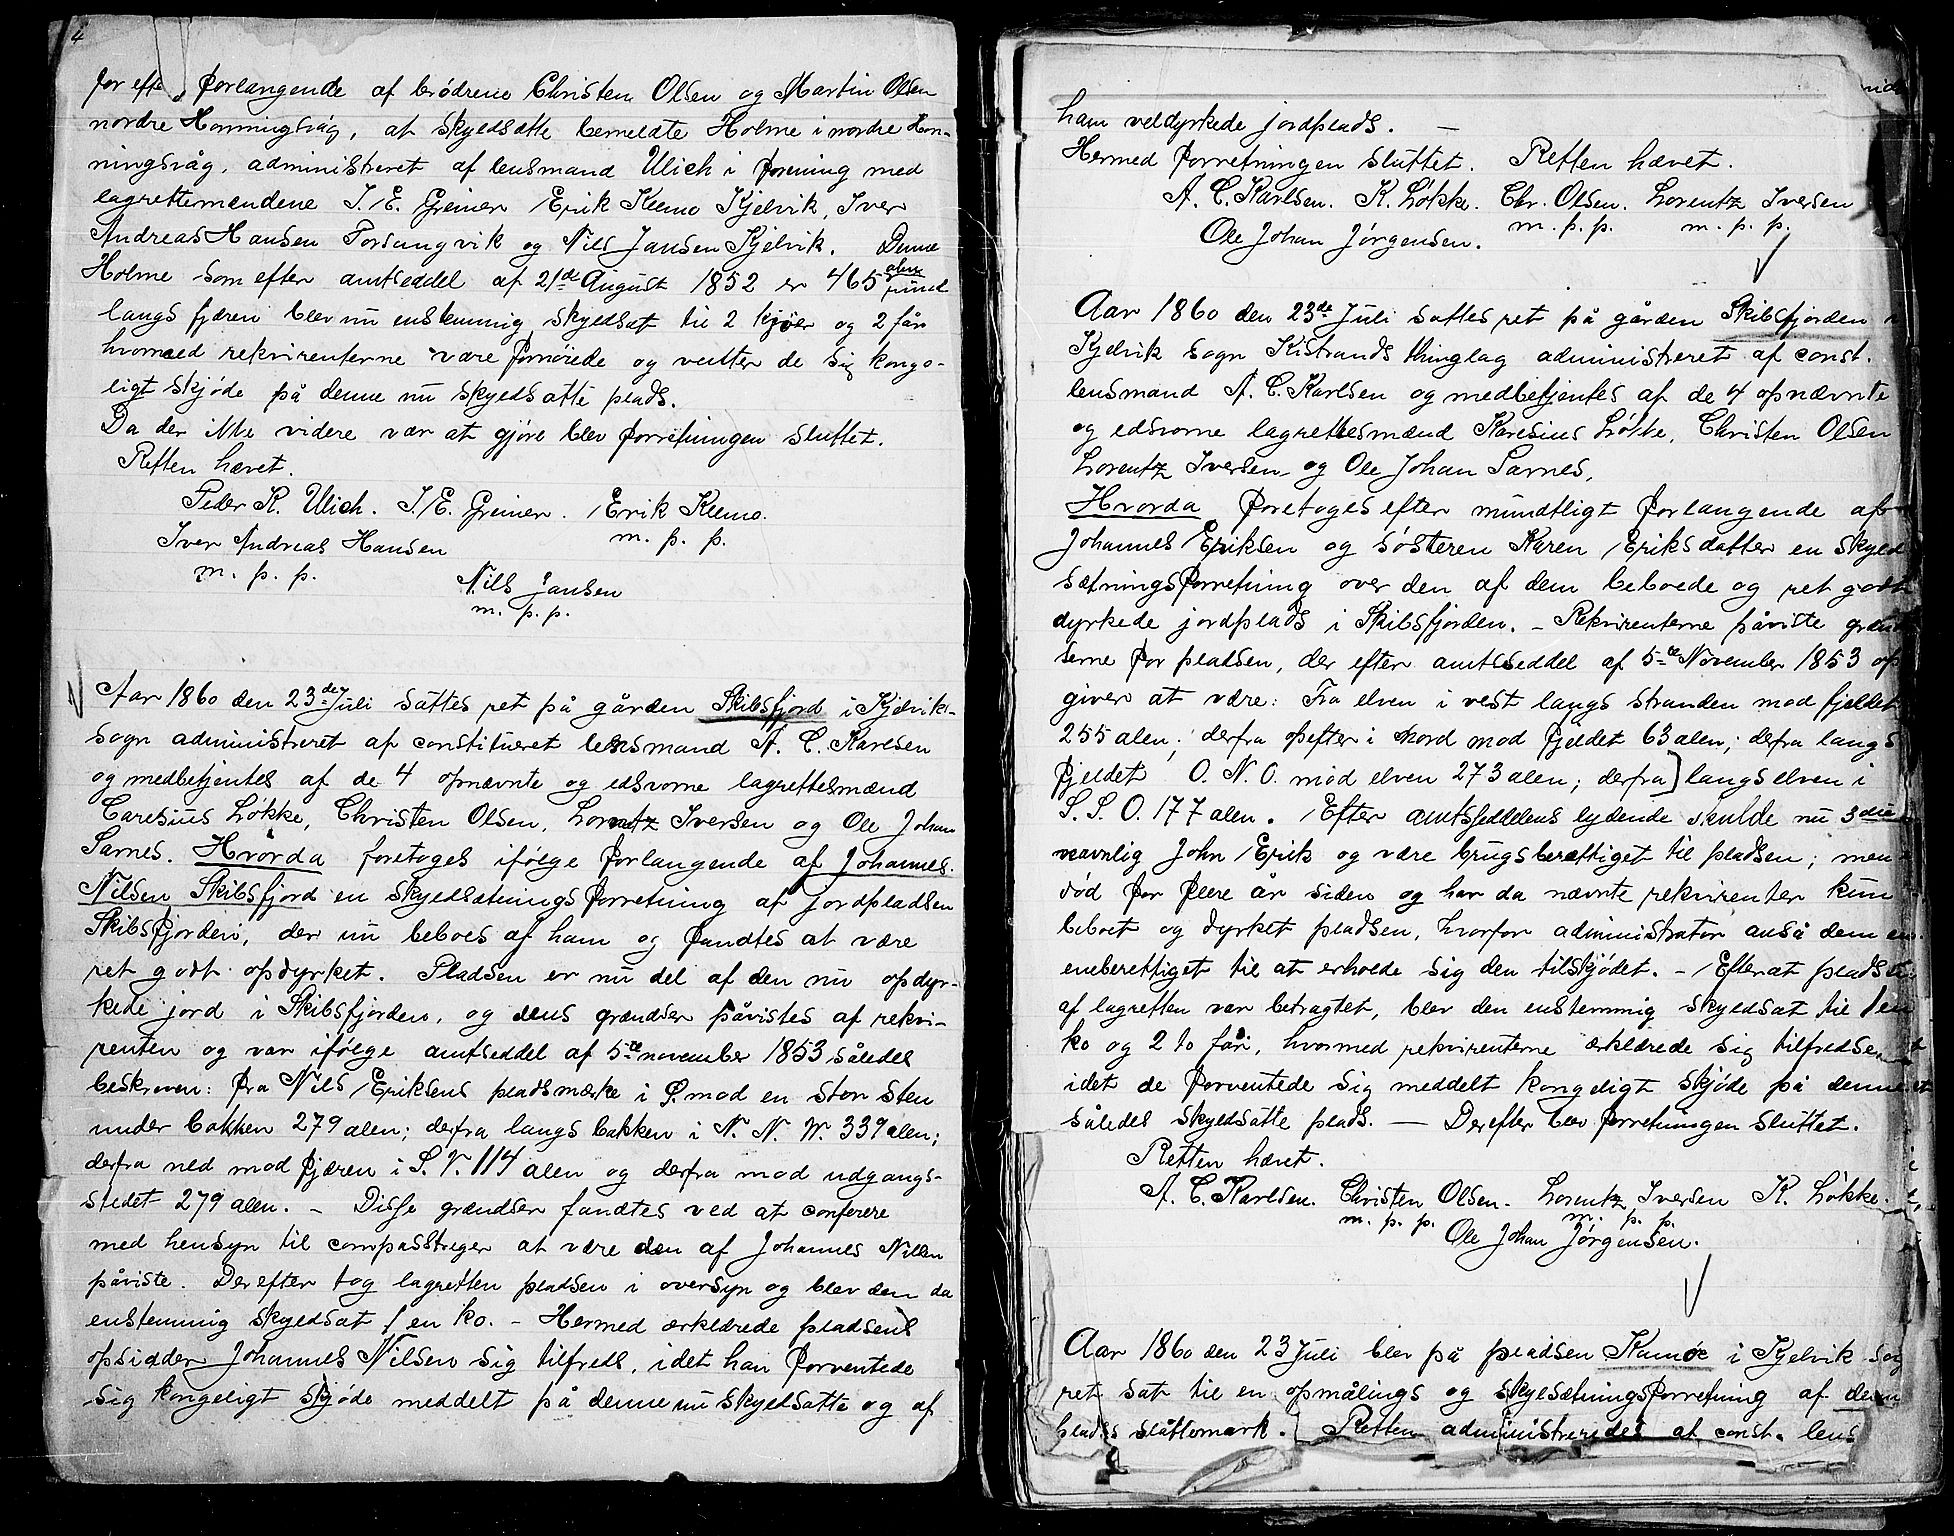 4
for efter forlangende af brødrene Christen Olsen og Martin Olsen
nordre Honningsvåg, at skyldsætte bemeldte Holme i nordre Hon-
ningsvåg, administreret af lensmand Ulich i forening med
lagrettemændene I. E. Greiner Erik Klemo Kjelvik, Iver
Andreas Hansen Porsangvik og Nils Jansen Kjelvik. Denne
Holme som efter amtseddel af 21de August 1852 er 465 alen rund
langs fjæren blev nu enstemmig skyldsat til 2 kjøer og 2 får
hvormed rekvirenterne være fornøiede og venter de sig konge-
ligt skjøde på denne nu skyldsatte plads.
Da der ikke videre var at gjøre blev forretningen sluttet.
Retten hævet.
Peder K. Ulich. I. E. Greiner. Erik Klemo.
m. p. p.
Iver Andreas Hansen
m. p. p.
Nils Jansen
m. p. p.
Aar 1860 den 23de Juli sattes ret på gården Skibsfjord i Kjelvik-
sogn administreret af constitueret lensmand A. C. Karlsen
og medbetjentes af de 4 opnævnte og edsvorne lagrettesmænd
Caresius Løkke, Christen Olsen, Lorentz Iversen og Ole Johan
Sarnes. Hvorda foretoges ifølge forlangende af Johannes
Nilsen Skibsfjord en skyldsætningsforretning af Jordpladsen
Skibsfjorden, der nu beboes af ham og fandtes at være
ret godt opdyrket. Pladsen er nu del af den nu opdyr-
kede jord i Skibsfjorden, og dens grændser påvistes af rekvi-
renten og var ifølge amtseddel af 5te november 1853 således
beskreven: fra Nils Eriksens pladsmærke i Ø. mod en stor sten
under bakken 279 alen; derfra langs bakken i N. N. W. 339 alen;
derfra ned mod fjæren i S. V. 114 alen og derfra mod udgangs-
stedet 279 alen. - Disse grændser fandtes ved at conferere
med hensyn til compasstreger at være den af Johannes Nilsen
påviste. Derefter tog lagretten pladsen i oversyn og blev den da
enstemmig skyldsat 1 en ko. - Hermed erklærede pladsens
opsidder Johannes Nilsen sig tilfreds, idet han forventede
sig kongeligt skjøde meddelt på denne nu skyldsatte og af
ham veldyrkede jordplads. -
Hermed forretningen sluttet. Retten hævet.
A. C. Karlsen. K. Løkke. Chr. Olsen. Lorentz Iversen
m. p. p. m. p. p.
Ole Johan Jørgensen.
Aar 1860 den 23de Juli sattes ret på gården Skibsfjorden i
Kjelvik sogn Kistrands thinglag administreret af const.
lensmand A. C. Karlsen og medbetjentes af de 4 opnævnte
og edsvorne lagrettesmænd Karesius Løkke, Christen Olsen
Lorentz Iversen og Ole Johan Sarnes.
Hvorda foretoges efter mundtligt forlangende af
Johannes Eriksen og søsteren Karen Eriksdatter en skyld
sætningsforretning over den af dem beboede og ret godt
dyrkede jordplads i Skibsfjorden. - Rekvirenterne påviste grænd
serne for pladsen, der efter amtsseddel af 5te November 1853 op
giver at være: Fra elven i vest langs stranden mod fjeldet
255 alen; derfra opefter i nord mod fjeldet 63 alen; derfra langs
fjeldet O. N. O. mod elven 273 alen; derfra langs elven i
S. S. O. 177 alen. Efter amtsseddelens lydende skulde nu 3die
navnlig John Erik og være brugsberettiget til pladsen; men
død for flere år siden og har da nævnte rekvirenter kun
beboet og dyrket pladsen, hvorfor administrator anså dem
eneberettiget til at erholde sig den tilskjødet. - Efterat pladsen
af lagretten var betragtet, blev den enstemmig skyldsat til 1 en
ko og 2 to får, hvormed rekvirenterne erklærede sig tilfredse
idet de forventede sig meddelt kongeligt skjøde på denne
således skyldsatte plads. - Derefter blev forretningen sluttet.
Retten hævet.
A. C. Karlsen. Christen Olsen. Lorentz Iversen K. Løkke.
m. p. p. m. p. p.
Ole Johan Jørgensen.
Aar 1860 den 23 Juli blev på pladsen Kamøe i Kjelvik sog
ret sat til en opmålings og skyldsætningsforretning af denne
plads slåttemark. Retten administreredes af const. lens